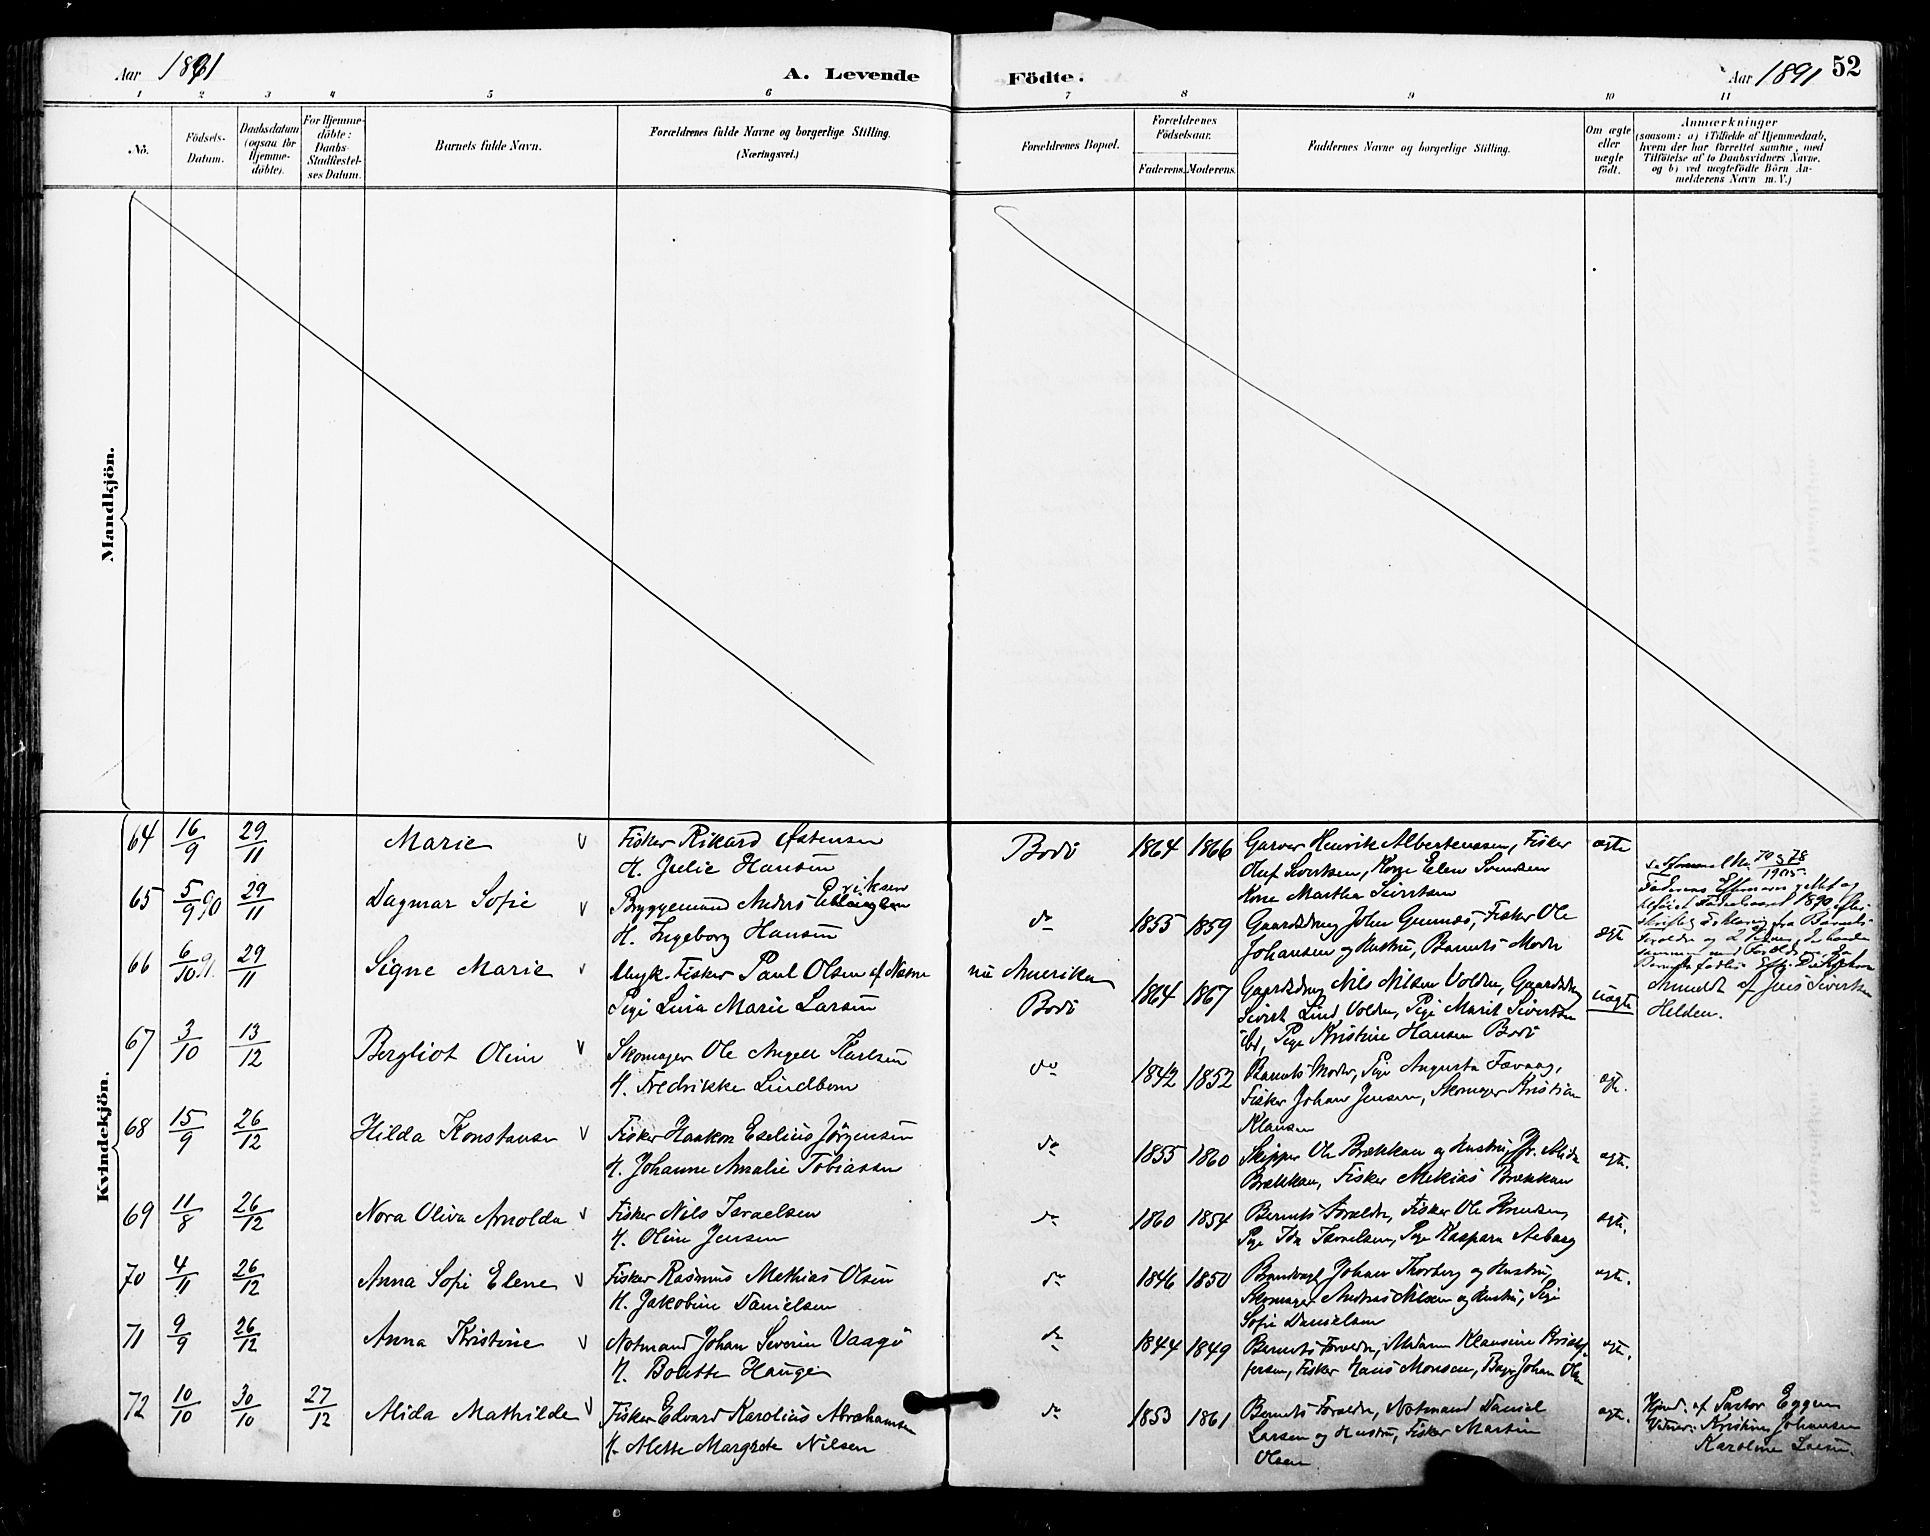 Aar 1891
A. Levende
Födte.
Aar 1891
52
1 2 3 4 5 6 7 8 9 10 11
No.
Födsels-
Datum.
Daabsdatum
(ogsaa for
Hjemme-
döbte).
For Hjemme-
döbte:
Daabs-
Stadfæstel-
ses Datum.
Barnets fulde Navn.
Forældrenes fulde Navne og borgerlige Stilling.
(Næringsvei.)
Forældrenes Bopæl.
Forældrenes
Födselsaar.
Faderens. Moderens.
Faddernes Navne og borgerlige Stilling.
Om ægte
eller
uægte
födt.
Anmærkninger
(saasom: a) i Tilfælde af Hjemmedaab,
hvem der har forrettet samme, med
Tilföielse af to Daabsvidners Navne.
og b) ved uægtefödte Börn An-
melderens Navn m. V.)
Mandkjön.
Kvindekjön.
64 16/9 29/11 Marie
Fisker Rikard Østensen
H. Julie Hansen
Bodö 1864 1866
Garver Henrik Albertensen, Fisker
Oluf Sivertsen, Kone Elen Svendsen
Kone Martha Sivertsen
ægte
65 5/9 90 29/11 Dagmar Sofie
Bryggemand Anders
H. Ingeborg Hansen
do 1855 1859
Gaardbrug John Gumnæs, Fisker Ole
Johansen og Hustru, Barnets Moder
ægt
66 6/10 91. 29/11 Signe Marie
Ungk. Fisker Paul Olsen af Næsne
Pige Lina Marie Larsen
nu Amerika
Bodö
1864 1867
Gaardbrug Nils Nilsen Volden, Gaardbrug
Sivert Lind Volden, Pige Marit Sivertsen
ibd, Pige Kristine Hansen Bodö
uægte
Anmeldt af Jens Sivertsen
Helden.
67 3/10 13/12 Bergliot Oline
Skomager Ole Angell Karlsen
H. Fredrikke Lindbom
do 1842 1852
Barnets Moder, Pige Augusta Fævaag,
Fisker Johan Jensen, Skomager Kristian
Klausen
ægte.
68 15/9 26/12 Hilda Konstanse
Fisker Haakon Eselius Jörgensen
H. Johanne Amalie Tobiassen
do 1855 1860
Skipper Ole Brækkan og Hustru, Jfr. Alida
Brækkan, Fisker Mekias Brækkan
ægte.
69 11/8 26/12 Nora Oliva Arnolda
Fisker Nils Israelsen
H. Oline Jensen
do 1860 1854
Barnets Forældre, Fisker Ole Knudsen,
Pige Ida Israelsen, Pige Kaspara Aebaag
ægte.
70 4/11 26/12 Anna Sofie Elene
Fisker Rasmus Mekias Olsen
H. Jakobine Danielsen
do 1846 1850
Brandvagt Johan Thorberg og Hustru,
Skomager Andreas Nilsen og Hustru, Pige
Sofie Danielsen
ægte.
71 9/9 26/12 Anna Kristine
Notmand Johan Severin Vaagö
H. Bolette Hauge
do 1844 1849
Barnets Forældre, Madam Klausine Kristof-
fersen, Fisker Hans Monsen, Johan
ægte.
72 10/10 30/10 27/12 Alida Mathilde
Fisker Edvard Karolius Abrahamsen
H. Mette Margrete Nilsen
do 1853 1861
Barnets Forældre, Notmand Daniel
Larsen og Hustru, Fisker Martin
Olsen
ægte.
Hjmd. af Pastor Eggen
Vidner: Kristine Johansen
Karoline